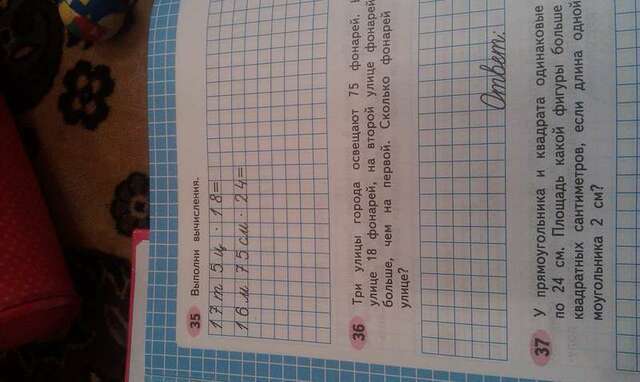 35 Выполни вычисления.
17 т 5 ц · 18=
16 м 75 см · 24=
36 Три улицы города освещают 75 фонарей.
улице 18 фонарей, на второй улице фонарей
больше, чем на первой. Сколько фонарей
улице?
Ответ:
37 У прямоугольника и квадрата одинаковые
по 24 см. Площадь какой фигуры больше
квадратных сантиметров, если длина одной
моугольника 2 см?